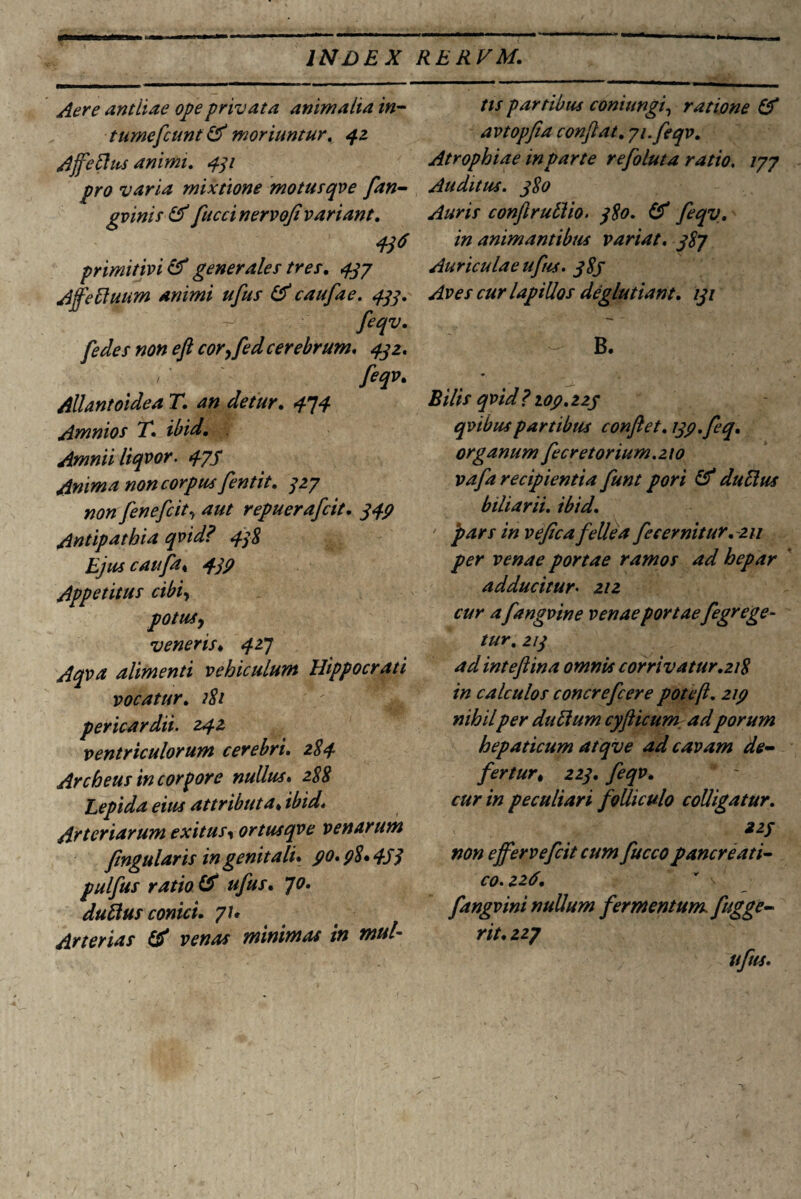 INDEX RERVM.
Aere antliae ope privata animalia in-
tumeſcunt & moriuntur. 42
Affectus animi. 431
pro varia mixtione motusqve ſan-
gvinis & ſucci nervoſi variant.
436
primitivi & generales tres. 437
Affectuum animi uſus & cauſae. 433.
ſeqv.
ſedes non eſt cor, ſed cerebrum. 432.
ſeqv.
Allantoidea T. an detur. 474
Amnios T. ibid.
Amnii liqvor. 475
Anima non corpus ſentit. 327
non ſeneſcit, aut repueraſcit. 349
Antipathia qvid? 438
Ejus cauſa. 439
Appetitus cibi,
potus,
veneris. 427
Aqva alimenti vehiculum Hippocrati
vocatur. 181
pericardii. 242
ventriculorum cerebri. 284
Archeus in corpore nullus. 288
Lepida eius attributa. ibid.
Arteriarum exitus, ortusqve venarum
ſingularis in genitali. 90. 98. 453
pulſus ratio & uſus. 70.
ductus conici. 71.
Arterias & venas minimas in mul-
tis partibus coniungi, ratione &
avtopſia conſtat. 71. ſeqv.
Atrophiae in parte reſoluta ratio. 177
Auditus. 380
Auris conſtructio. 380. & ſeqv.
in animantibus variat. 387
Auriculae uſus. 385
Aves cur lapillos deglutiant. 131
B.
Bilis qvid? 209. 225
qvibus partibus conſtet. 139. ſeq.
organum ſecretorium. 210
vaſa recipientia ſunt pori & ductus
biliarii. ibid.
pars in veſica fellea ſecernitur. 211
per venae portae ramos ad hepar
adducitur. 212
cur a ſangvine venae portae ſegrege-
tur. 213
ad inteſtina omnis corrivatur. 218
in calculos concreſcere poteſt. 219
nihil per ductum cyſticum ad porum
hepaticum atqve ad cavam de-
fertur. 223. ſeqv.
cur in peculiari folliculo colligatur.
225
non efferveſcit cum ſucco pancreati-
co. 226.
ſangvini nullum fermentum ſugge-
rit. 227
uſus.